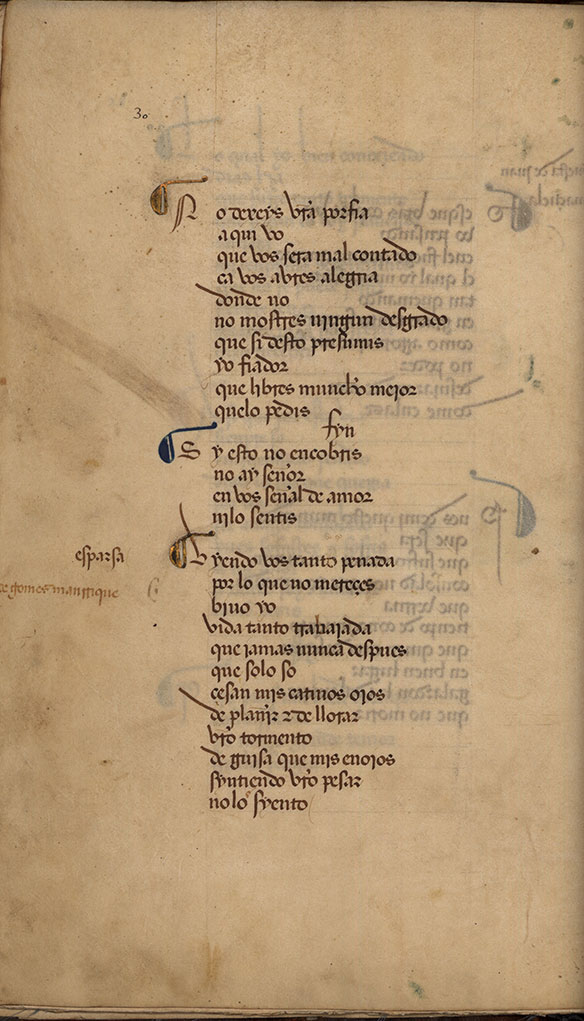 30
No dexeys vra porfia
aqui vo
que vos sera mal contado
ca vos aures alegria
donde no
no mostres ningun desgrado
que si desto presumis
yo fiador
que libres muncho mejor
quelo pedis
fyn
Sy esto no encobris
no ay señor
en vos señal de amor
nilo sentis
esparsa
de gomes manrrique
Vyendo vos tanto penada
por lo que no mereçes
biuo yo
vida tanto trabaiada
que iamas nunca despues
que solo so
çesan mis catiuos oios
de plañir z de llorar
vro tormento
de guisa que mis enoios
syntiendo vro pesar
nolo syento